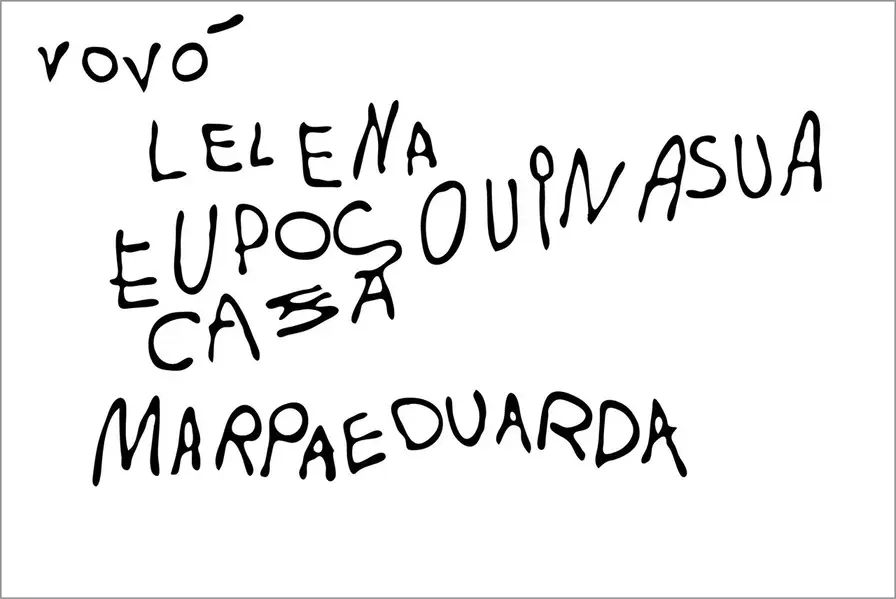 VOVÓ
LELENA
EUPOÇOUIN ASUA
CASA
MARPAEDUARDA